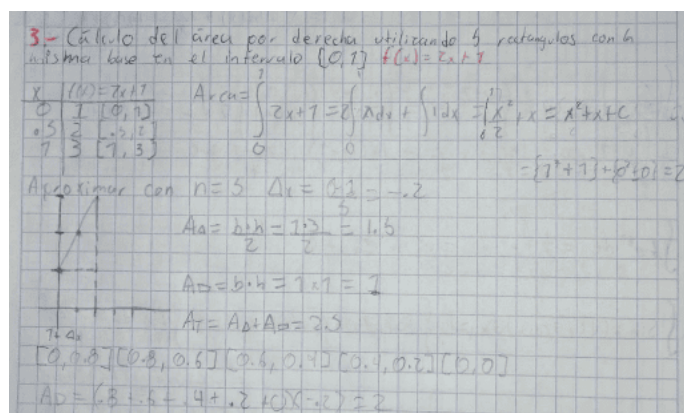 3.- Cálculo del área por derecha utilizando 5 rectangulos con la
misma base en el intervalo [0,1] f(x)=2x+1
x | f(x)=2x+1
0 | 1 [0,1]
.5 | 2 [.5,2]
1 | 3 [1,3]
Area=∫ 2x+1 = 2∫ xdx + ∫ 1dx = x²/2 + x = x²+x+C
=[1²+1]-[0²+0]=2
Aproximar con n=5 Δx = 0-1/5 = -.2
A△ = b·h/2 = 1·3/2 = 1.5
A▭ = b·h = 1×1 = 1
AT = A△+A▭ = 2.5
[0,0.8][0.8,0.6][0.6,0.4][0.4,0.2][0,0]
AD = (.8+.6+.4+.2+0)(-.2) = 2